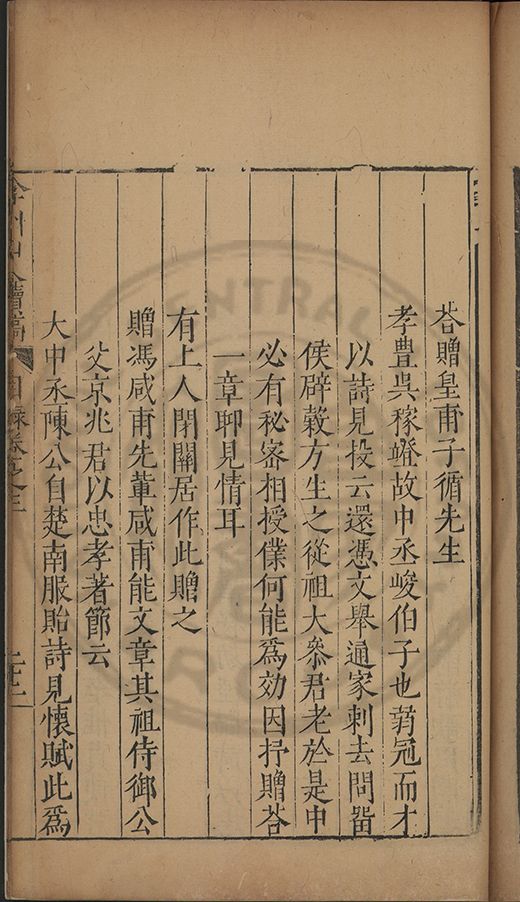 荅贈皇甫子循先生
孝豊吳稼竳故中丞峻伯子也萷冠而才
以詩見投云還憑文舉通家刺去問畱
侯辟榖方生之從祖大叅君老於是中
必有秘宻相授僕何能爲効因抒贈荅
一章聊見情耳
有上人閉關居作此贈之
贈馮咸甫先輩咸甫能文章其祖侍御公
父京兆君以忠孝著節云
大中丞陳公自楚南服貽詩見懷賦此爲
弇州山人續稿
目録卷之三
二十二
CENTRAL